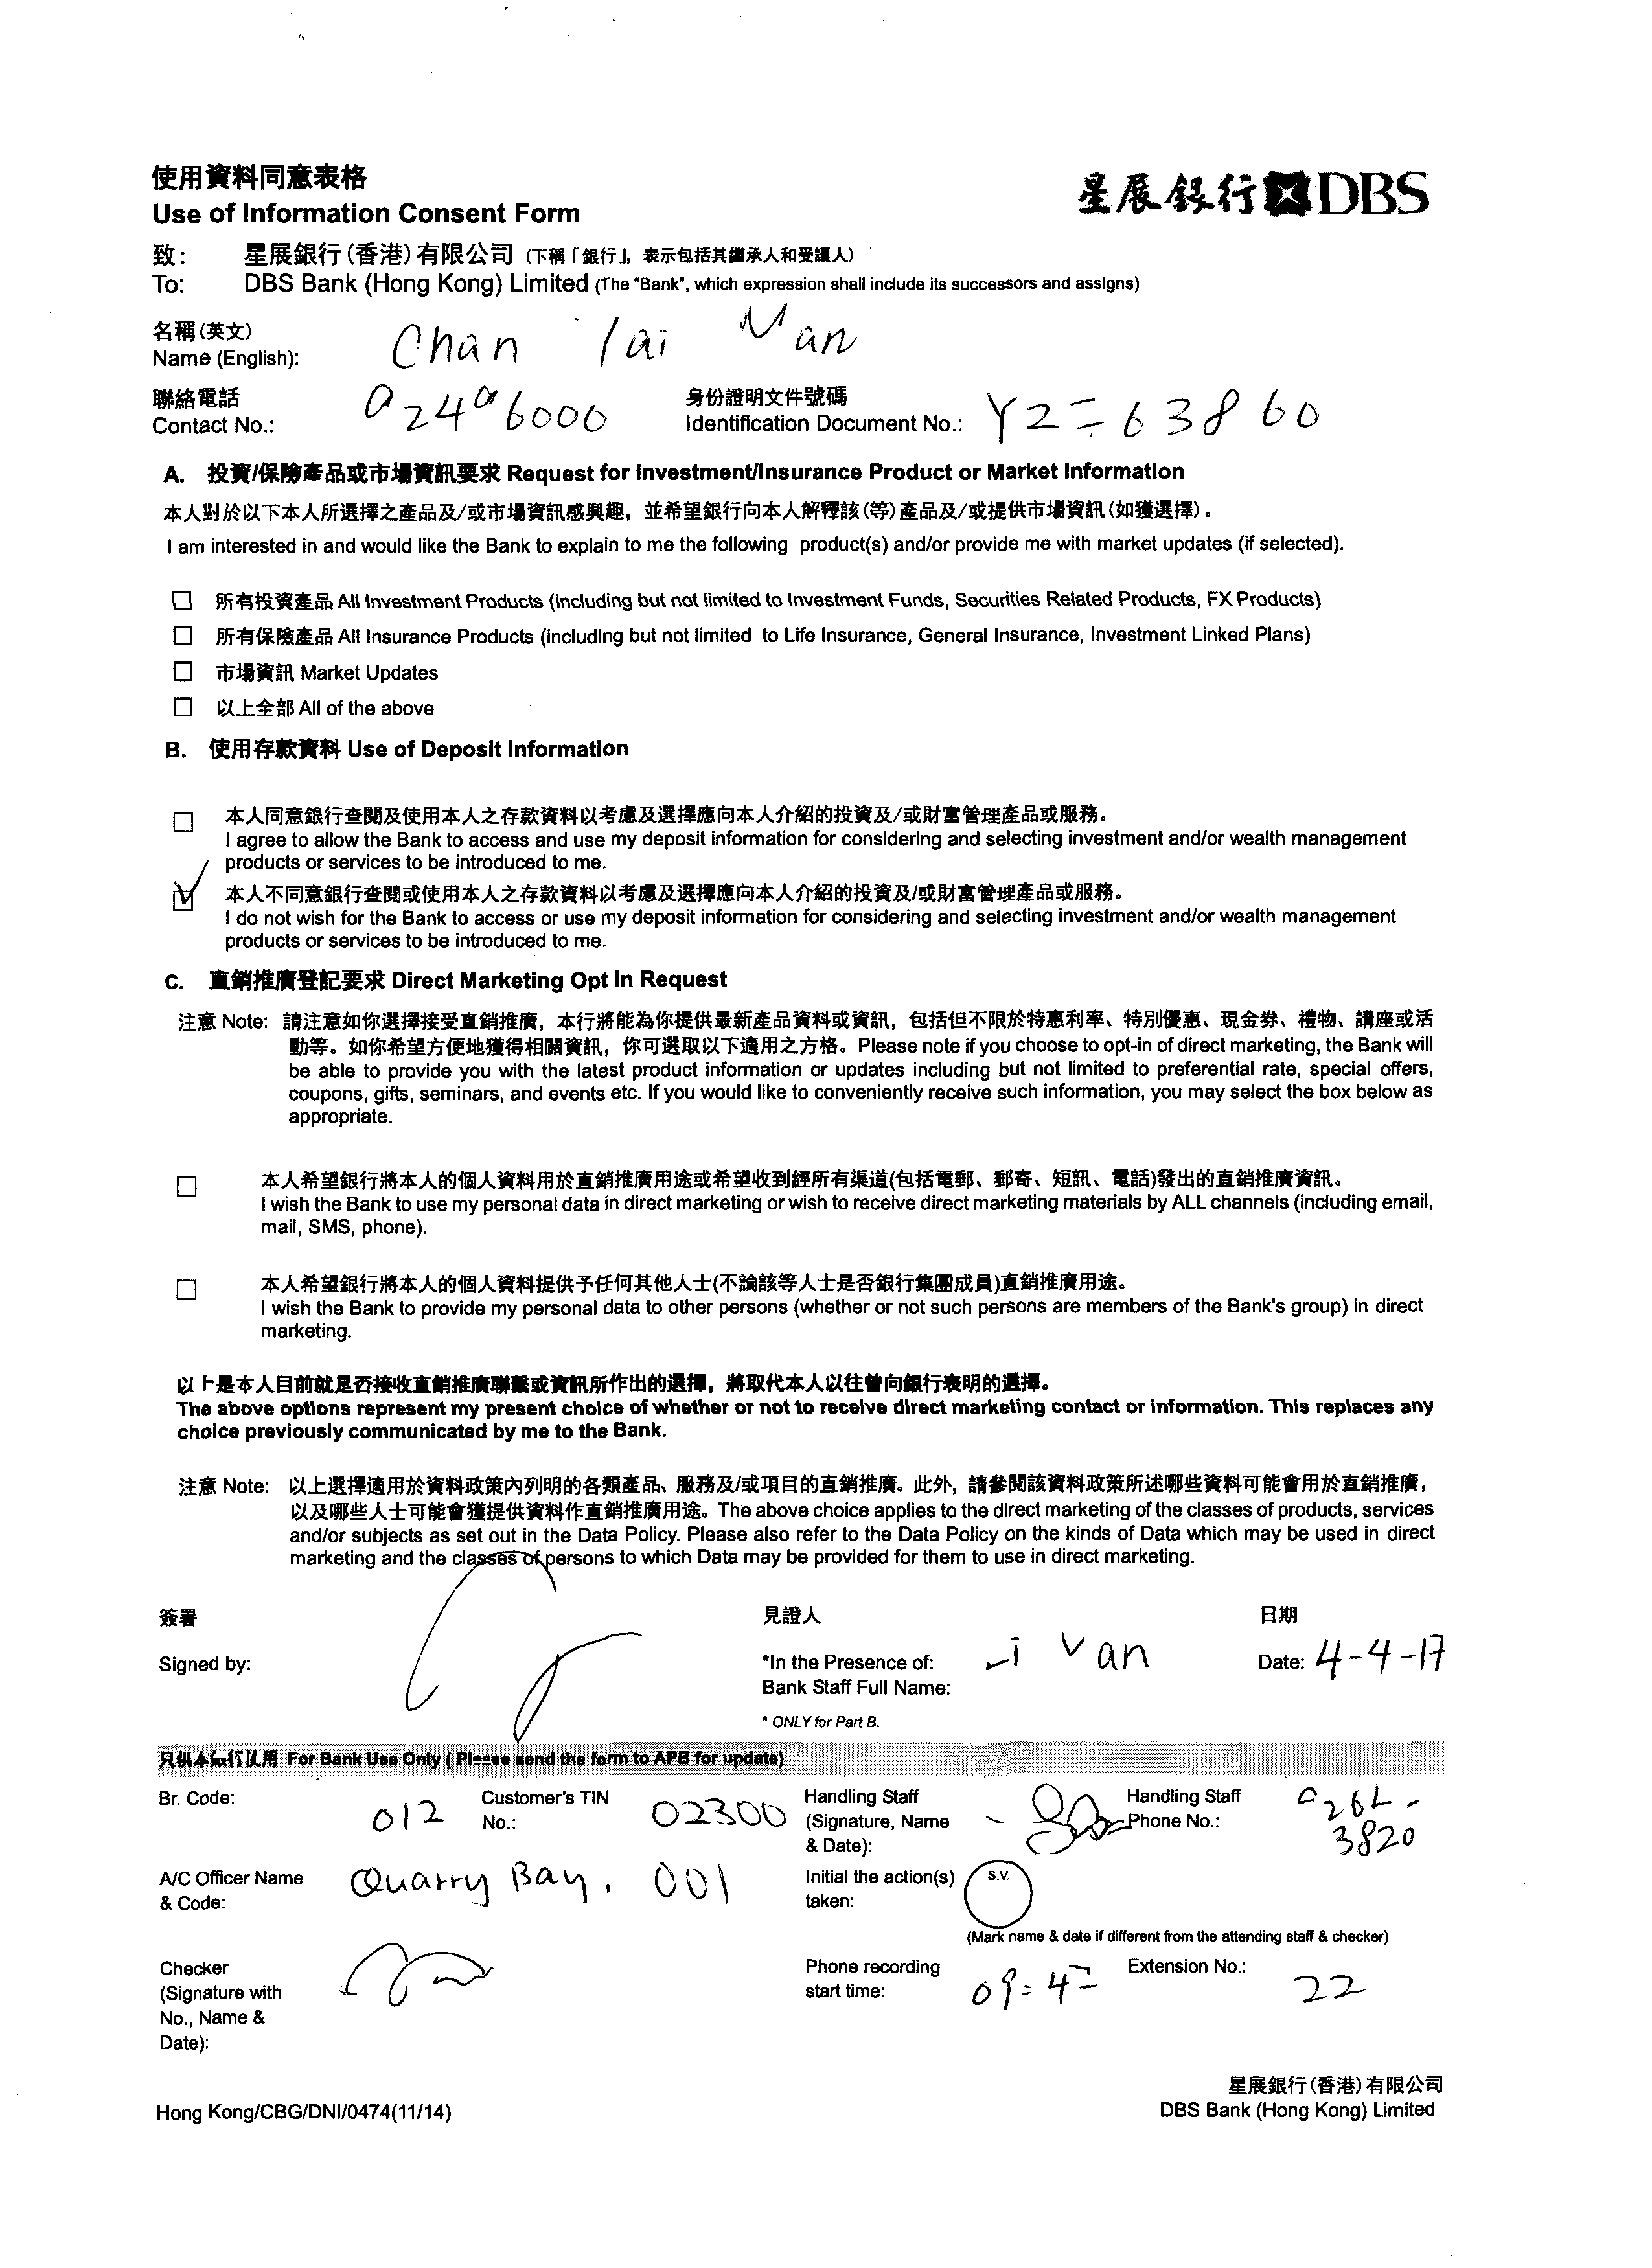 使用資料同意表格
Use of Information Consent Form
星展銀行 DBS
致： 星展銀行(香港)有限公司 (下稱「銀行」，表示包括其繼承人和受讓人)
To: DBS Bank (Hong Kong) Limited (The "Bank", which expression shall include its successors and assigns)
名稱(英文)
Name (English): Chan Tai Man
聯絡電話 身份證明文件號碼
Contact No.: Identification Document No.:
A. 投資/保險產品或市場資訊要求 Request for Investment/Insurance Product or Market Information
本人對於以下本人所選擇之產品及/或市場資訊感興趣，並希望銀行向本人解釋該(等)產品及/或提供市場資訊(如獲選擇)。
I am interested in and would like the Bank to explain to me the following product(s) and/or provide me with market updates (if selected).
所有投資產品 All Investment Products (including but not limited to Investment Funds, Securities Related Products, FX Products)
所有保險產品 All Insurance Products (including but not limited to Life Insurance, General Insurance, Investment Linked Plans)
市場資訊 Market Updates
以上全部 All of the above
B. 使用存款資料 Use of Deposit Information
本人同意銀行查閱及使用本人之存款資料以考慮及選擇應向本人介紹的投資及/或財富管理產品或服務。
I agree to allow the Bank to access and use my deposit information for considering and selecting investment and/or wealth management
products or services to be introduced to me.
本人不同意銀行查閱或使用本人之存款資料以考慮及選擇應向本人介紹的投資及/或財富管理產品或服務。
I do not wish for the Bank to access or use my deposit information for considering and selecting investment and/or wealth management
products or services to be introduced to me.
C. 直銷推廣登記要求 Direct Marketing Opt In Request
注意 Note: 請注意如你選擇接受直銷推廣，本行將能為你提供最新產品資料或資訊，包括但不限於特惠利率、特別優惠、現金券、禮物、講座或活
動等。如你希望方便地獲得相關資訊，你可選取以下適用之方格。Please note if you choose to opt-in of direct marketing, the Bank will
be able to provide you with the latest product information or updates including but not limited to preferential rate, special offers,
coupons, gifts, seminars, and events etc. If you would like to conveniently receive such information, you may select the box below as
appropriate.
本人希望銀行將本人的個人資料用於直銷推廣用途或希望收到經所有渠道(包括電郵、郵寄、短訊、電話)發出的直銷推廣資訊。
I wish the Bank to use my personal data in direct marketing or wish to receive direct marketing materials by ALL channels (including email,
mail, SMS, phone).
本人希望銀行將本人的個人資料提供予任何其他人士(不論該等人士是否銀行集團成員)直銷推廣用途。
I wish the Bank to provide my personal data to other persons (whether or not such persons are members of the Bank's group) in direct
marketing.
以上是本人目前就是否接收直銷推廣聯繫或資訊所作出的選擇，將取代本人以往曾向銀行表明的選擇。
The above options represent my present choice of whether or not to receive direct marketing contact or information. This replaces any
choice previously communicated by me to the Bank.
注意 Note: 以上選擇適用於資料政策內列明的各類產品、服務及/或項目的直銷推廣。此外，請參閱該資料政策所述哪些資料可能會用於直銷推廣，
以及哪些人士可能會獲提供資料作直銷推廣用途。The above choice applies to the direct marketing of the classes of products, services
and/or subjects as set out in the Data Policy. Please also refer to the Data Policy on the kinds of Data which may be used in direct
marketing and the classes of persons to which Data may be provided for them to use in direct marketing.
簽署 見證人 日期
Signed by: *In the Presence of: Van Date: 4-4-17
Bank Staff Full Name:
* ONLY for Part B.
只供本銀行使用 For Bank Use Only ( Please send the form to APB for update)
Br. Code: 012 Customer's TIN No.: 02300 Handling Staff (Signature, Name & Date): Handling Staff Phone No.: 3820
A/C Officer Name & Code: Quarry Bay, 001 Initial the action(s) taken: S.V.
(Mark name & date if different from the attending staff & checker)
Checker (Signature with No., Name & Date): Phone recording start time: Extension No.: 22
星展銀行(香港)有限公司
Hong Kong/CBG/DNI/0474(11/14) DBS Bank (Hong Kong) Limited